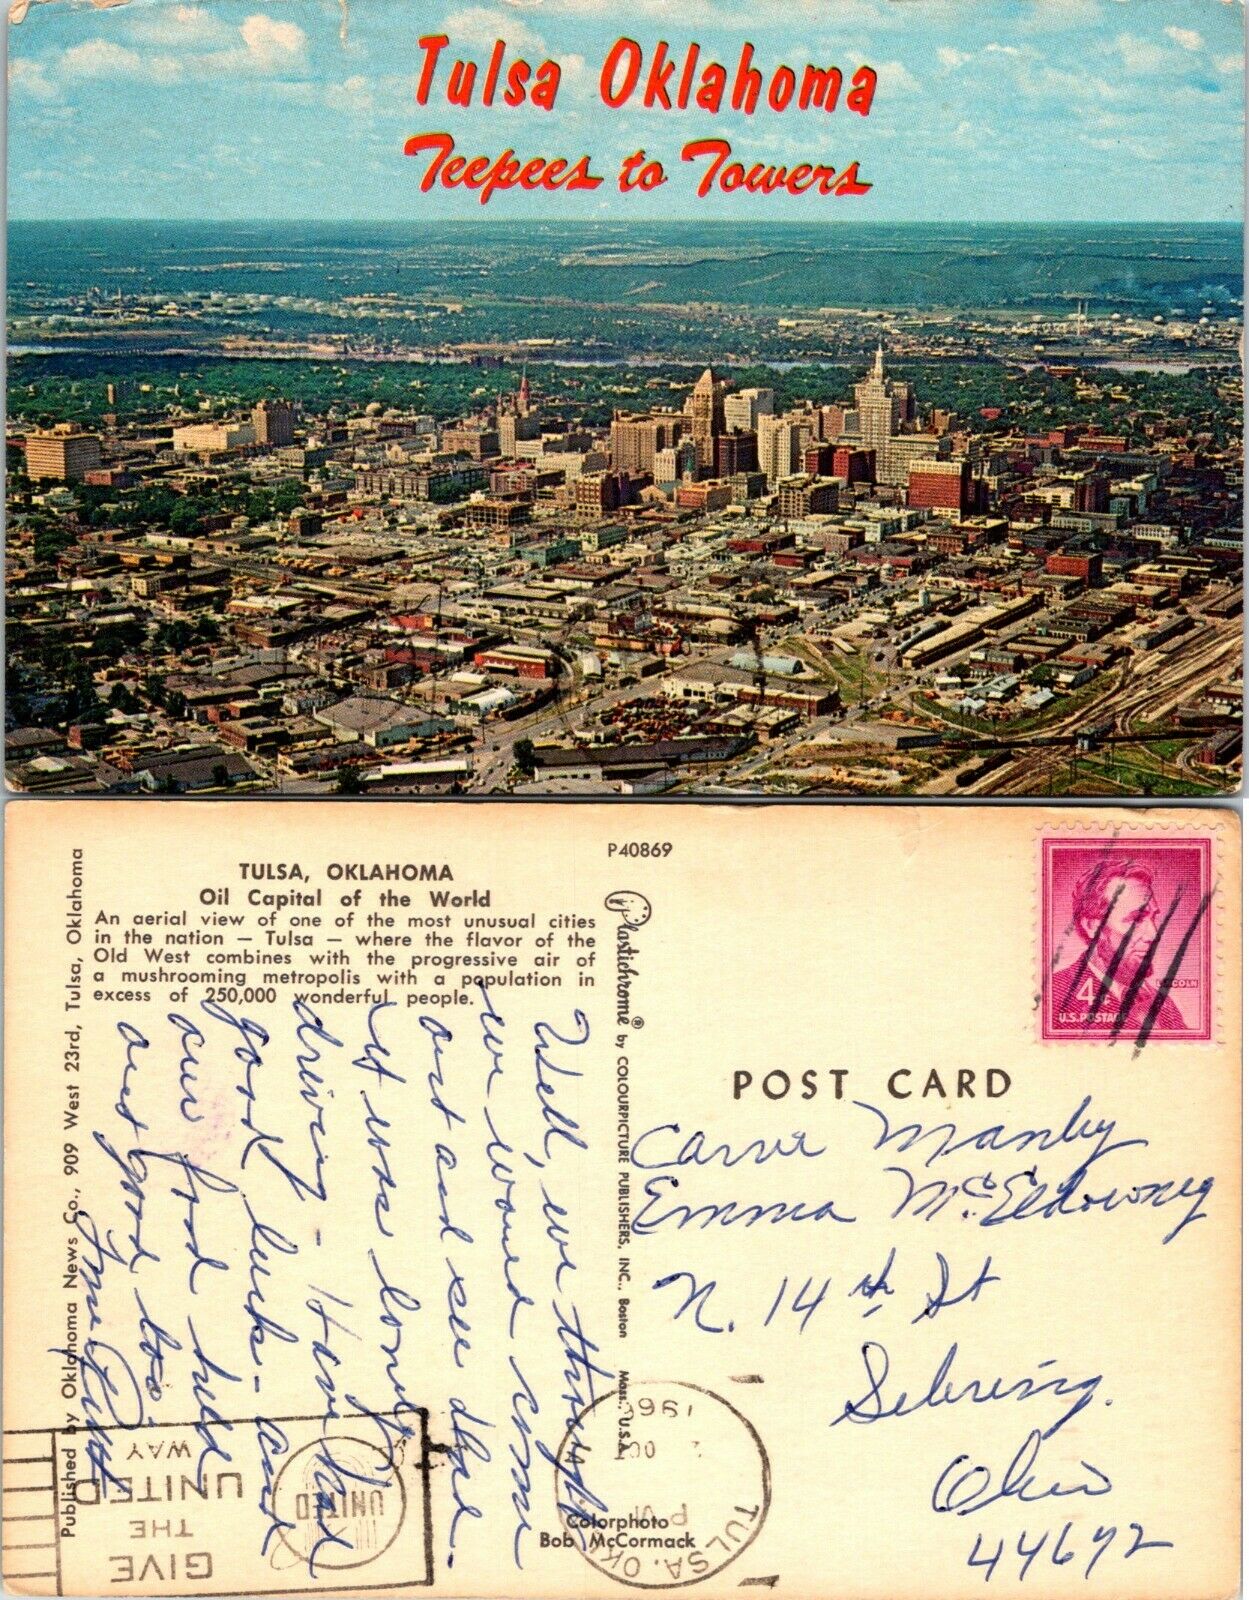 Tulsa Oklahoma
Teepees to Towers
TULSA, OKLAHOMA
Oil Capital of the World
An aerial view of one of the most unusual cities
in the nation — Tulsa — where the flavor of the
Old West combines with the progressive air of
a mushrooming metropolis with a population in
excess of 250,000 wonderful people.
Published by Oklahoma News Co., 909 West 23rd, Tulsa, Oklahoma
P40869
Plastichrome® by COLOURPICTURE PUBLISHERS, INC., Boston Mass., U.S.A.
Colorphoto
Bob McCormack
Well, we thought
we would come
out and see
it was lonely
driving - Have had
good luck - and
our food held
out good too.
POST CARD
4¢
LINCOLN
U.S. POSTAGE
Carrie Manley
Emma McEldowney
N. 14th St
Sebring.
Ohio
44672
GIVE
THE
UNITED
WAY
UNITED
TULSA, OKLA
PM
OCT
196